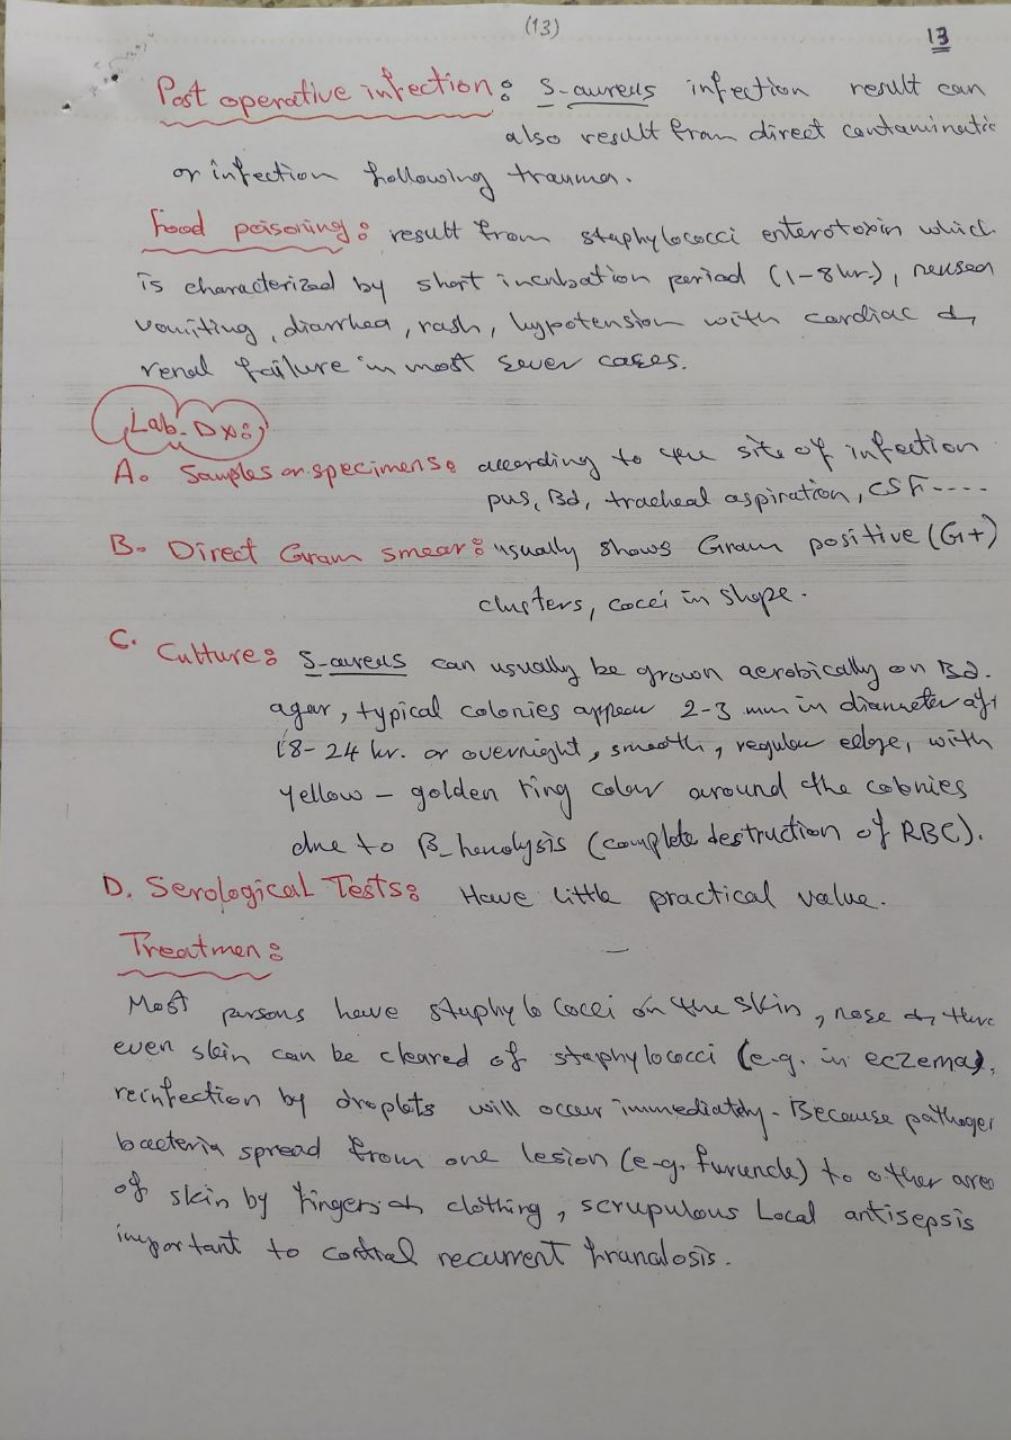 (13)
13
Post operative infection: S-aureus infection result can
also result from direct contaminatio
or infection following trauma.
Food poisoning: result from staphylococci enterotoxin which
is characterized by short incubation period (1-8 hr.), neusea
vomiting, diarrhea, rash, hypotension with cardiac &
renal failure in most sever cases.
Lab. Dx:
A. Samples or specimens: according to the site of infection
pus, Bd, tracheal aspiration, CSF----
B. Direct Gram smear: usually shows Gram positive (G+)
clusters, cocci in shape.
C. Culture: S-aureus can usually be grown aerobically on Bd.
agar, typical colonies appear 2-3 mm in diameter aft
18-24 hr. or overnight, smooth, regular edge, with
yellow - golden ring color around the colonies
due to β_hemolysis (complete destruction of RBC).
D. Serological Tests: Have little practical value.
Treatmen:
Most persons have staphylococci on the skin, nose &
even skin can be cleared of staphylococci (e.g. in eczema),
reinfection by droplets will occur immediately. Because pathogen
bacteria spread from one lesion (e-g. furuncle) to other area
of skin by fingers & clothing, scrupulous Local antisepsis
important to control recurrent